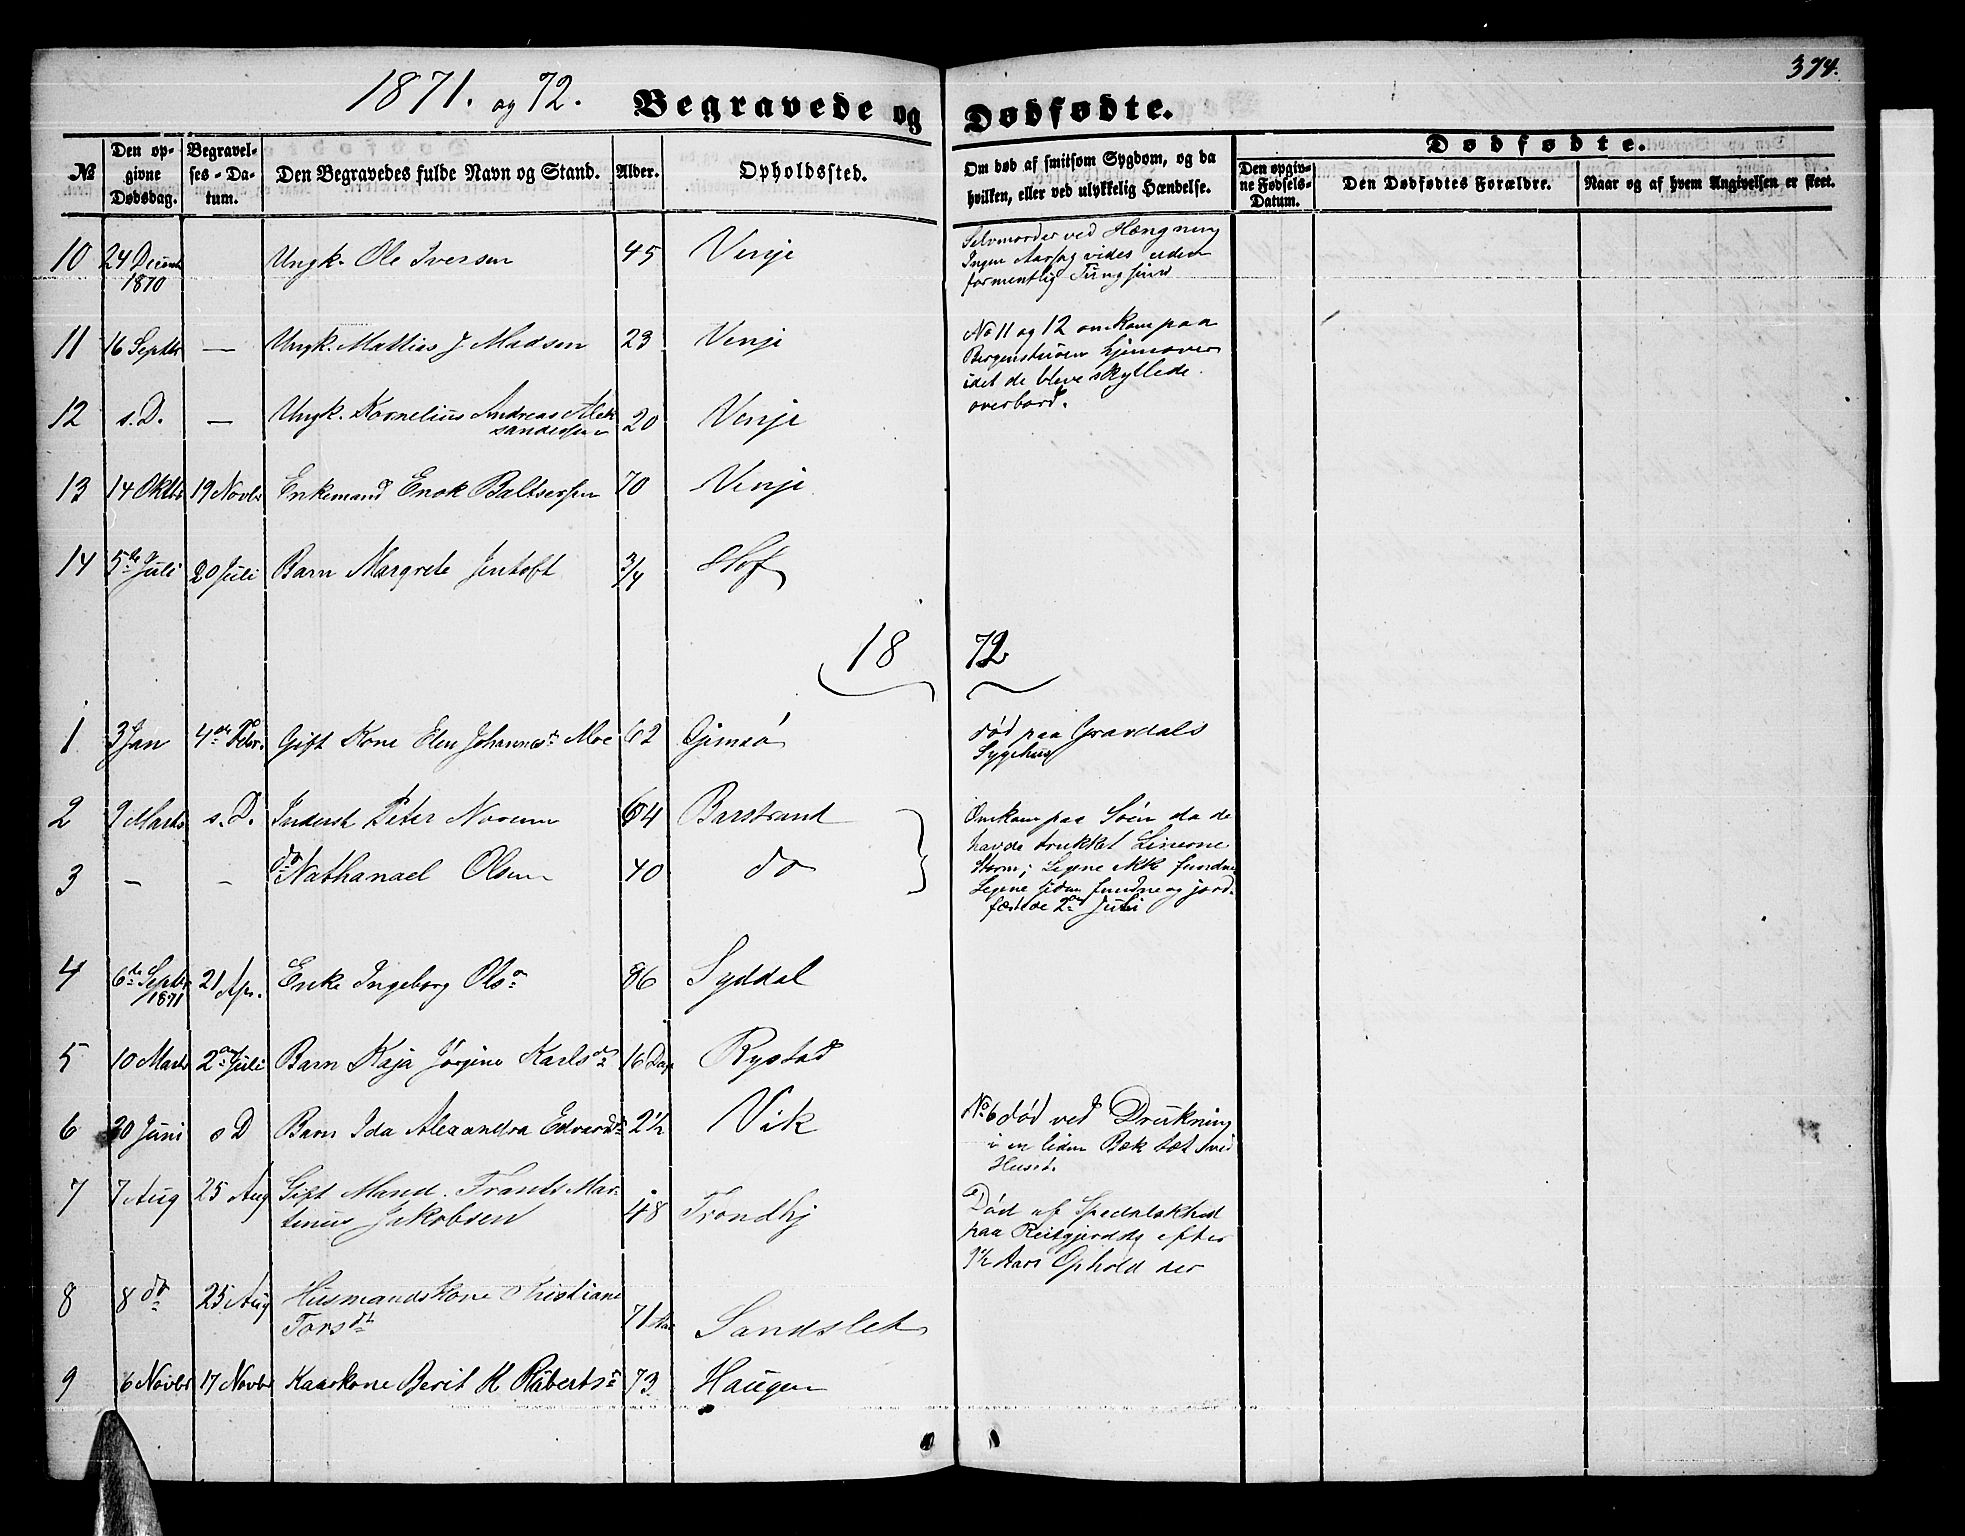 374.
1871. og 72. Begravede og Dødfødte.
№ Den opgivne Dødsdag. Begravelses-Datum. Den Begravedes fulde Navn og Stand. Alder. Opholdssted. Om død af smitsom Sygdom, og da hvilken, eller ved ulykkelig Hændelse. Dødfødte. Den opgivne Fødsels-Datum. Den Dødfødtes Forældre. Naar og af hvem Angivelsen er skeet.
10 24 Decemb 1870 Ungk. Ole Iversen 45 Venje Selvmorder ved Hængning
Ingen Aarsag vides uden
formentlig Tungsind
11 16 Septbr — Ungk. Mathias J. Madsen 23 Venje No 11 og 12 omkom paa
Bergensturen hjemover
idet de bleve skyllede
overbord.
12 s. D. — Ungk. Kornelius Andreas Alek
sandersen 20 Venje
13 14 Oktbr 19 Novbr Enkemand Enok Baltsersen 70 Venje
14 5te Juli 20 Juli Barn Margrete Jentoft 3/4 Hof
18 72
1 3 Jan 4de Febr. Gift Kone Elen Johannesd. Moe 62 Gjimsø død paa Gravdals
Sygehus
2 9 Marts s. D. Inderst Peter Norum 64 Barstrand Omkom paa Søen da de
havde trukket Linerne
3 — — do Nathanael Olsen 40 do Storm; Ligene ikke fundne
Ligene siden fundne og jord-
fæstede 2den Juli
4 6te Septbr 1871 21 Apr. Enke Ingeborg Olsd 86 Syddal
5 10 Marts 2den Juli Barn Kaja Jørgine Karlsd 16 Dage Rystad
6 20 Juni s D Barn Ida Alexandra Edvardd 2½ Vik No 6 død ved Drukning
i en liden Bæk tæt ved
Huset.
7 7 Aug 25 Aug Gift Mand. Frants Mar-
tinus Jakobsen 48 Trondhj Død af Spedalskhed
paa Reitgjerdet efter
9½ Aars Ophold der
8 8 do 25 Aug Husmandskone Kristiane
Torsdt 71 Sandslet
9 6 Novbr 17 Novbr Kaarkone Berit K Robertsd 73 Haugen